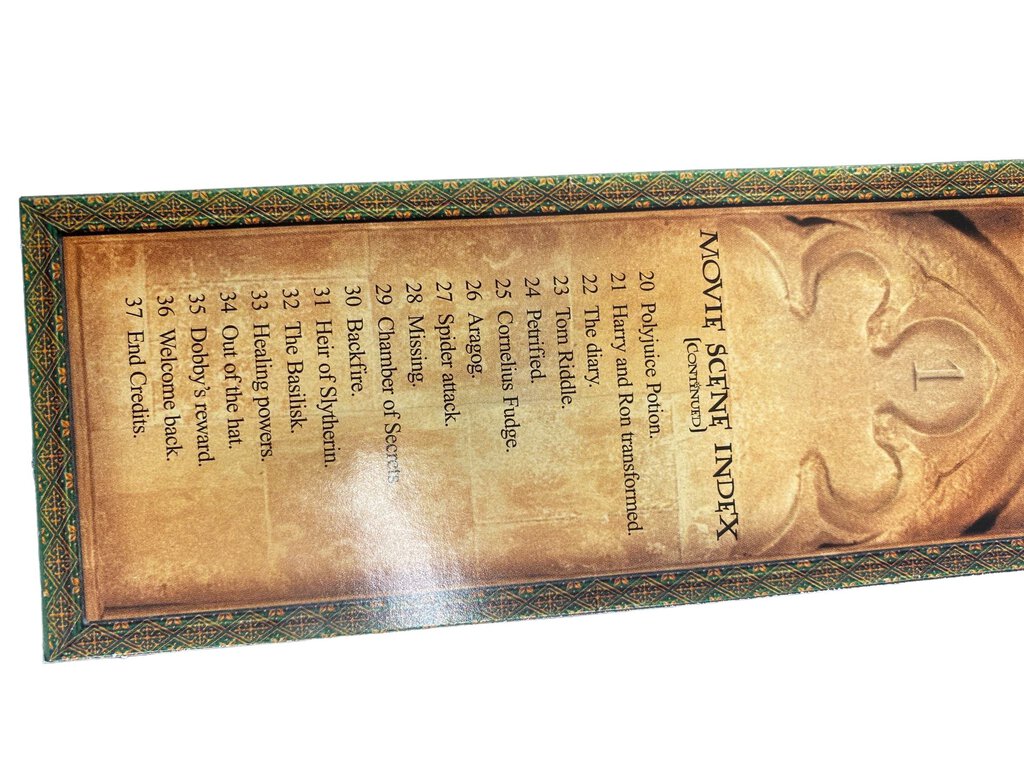 1
MOVIE SCENE INDEX
[CONTINUED]
20 Polyjuice Potion.
21 Harry and Ron transformed.
22 The diary.
23 Tom Riddle.
24 Petrified.
25 Cornelius Fudge.
26 Aragog.
27 Spider attack.
28 Missing.
29 Chamber of Secrets.
30 Backfire.
31 Heir of Slytherin.
32 The Basilisk.
33 Healing powers.
34 Out of the hat.
35 Dobby's reward.
36 Welcome back.
37 End Credits.